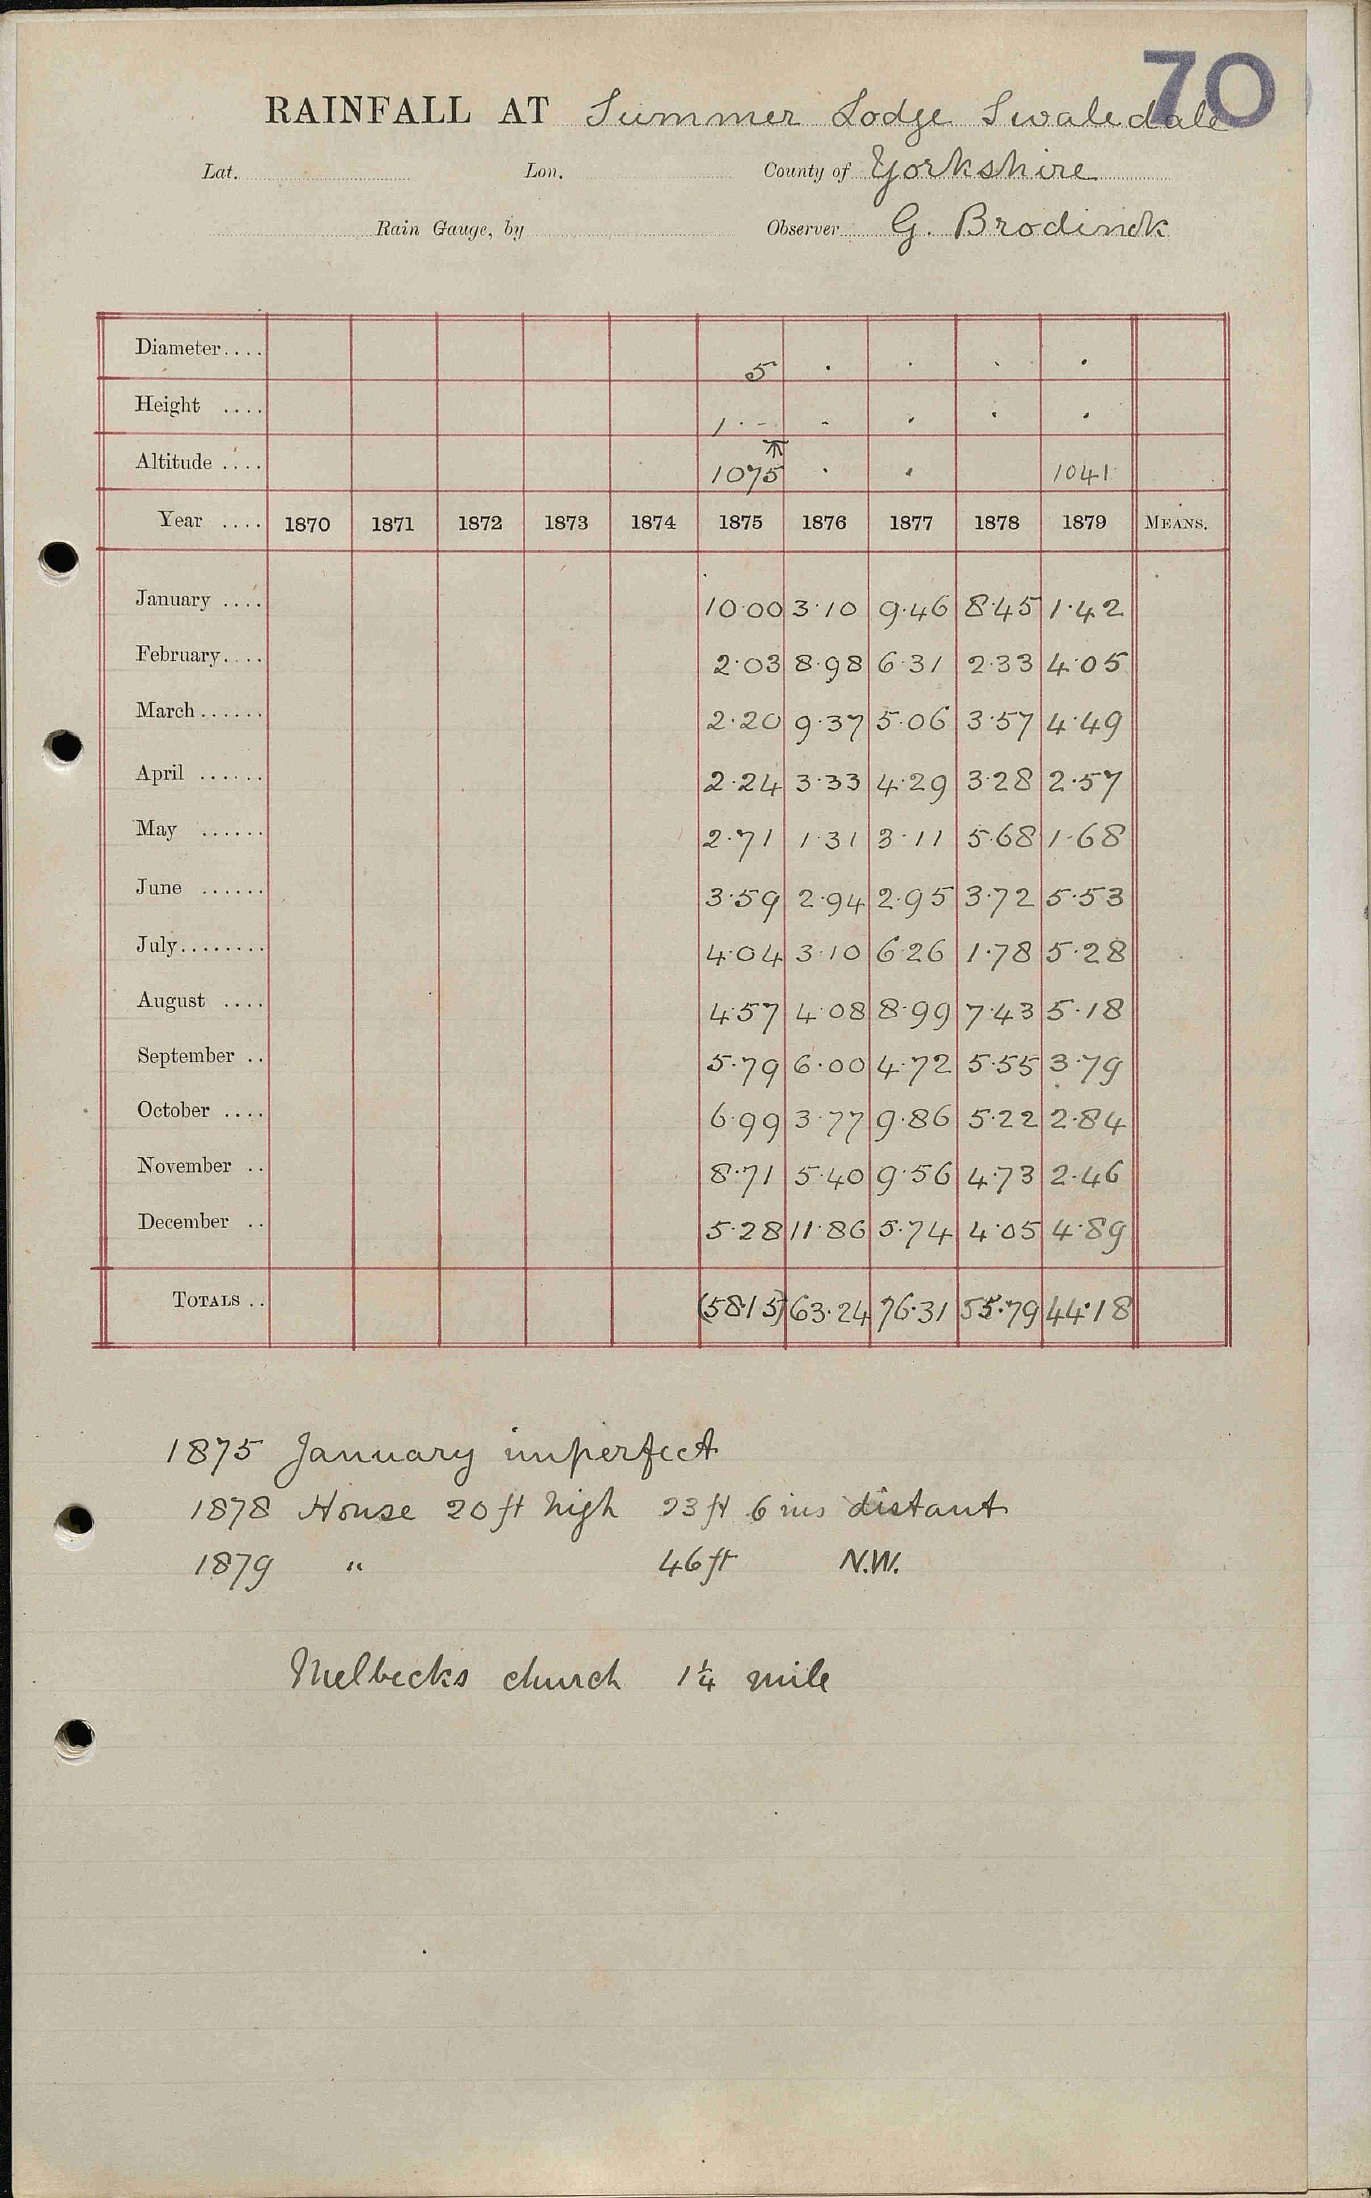 70
RAINFALL AT Summer Lodge Swaledale
Lat. Lon. County of Yorkshire
Rain Gauge, by Observer G. Brodinck
Diameter.... 5 . . . .
Height .... 1 . - - . . .
Altitude .... 1075 . . 1041
Year .... 1870 1871 1872 1873 1874 1875 1876 1877 1878 1879 MEANS.
January .... 10.00 3.10 9.46 8.45 1.42
February.... 2.03 8.98 6.31 2.33 4.05
March...... 2.20 9.37 5.06 3.57 4.49
April ...... 2.24 3.33 4.29 3.28 2.57
May ...... 2.71 1.31 3.11 5.68 1.68
June ...... 3.59 2.94 2.95 3.72 5.53
July........ 4.04 3.10 6.26 1.78 5.28
August .... 4.57 4.08 8.99 7.43 5.18
September .. 5.79 6.00 4.72 5.55 3.79
October .... 6.99 3.77 9.86 5.22 2.84
November .. 8.71 5.40 9.56 4.73 2.46
December .. 5.28 11.86 5.74 4.05 4.89
TOTALS .. (58.15) 63.24 76.31 55.79 44.18
1875 January imperfect
1878 House 20 ft high 23 ft 6 ins distant
1879 " 46 ft N.W.
Melbecks church 1¼ mile